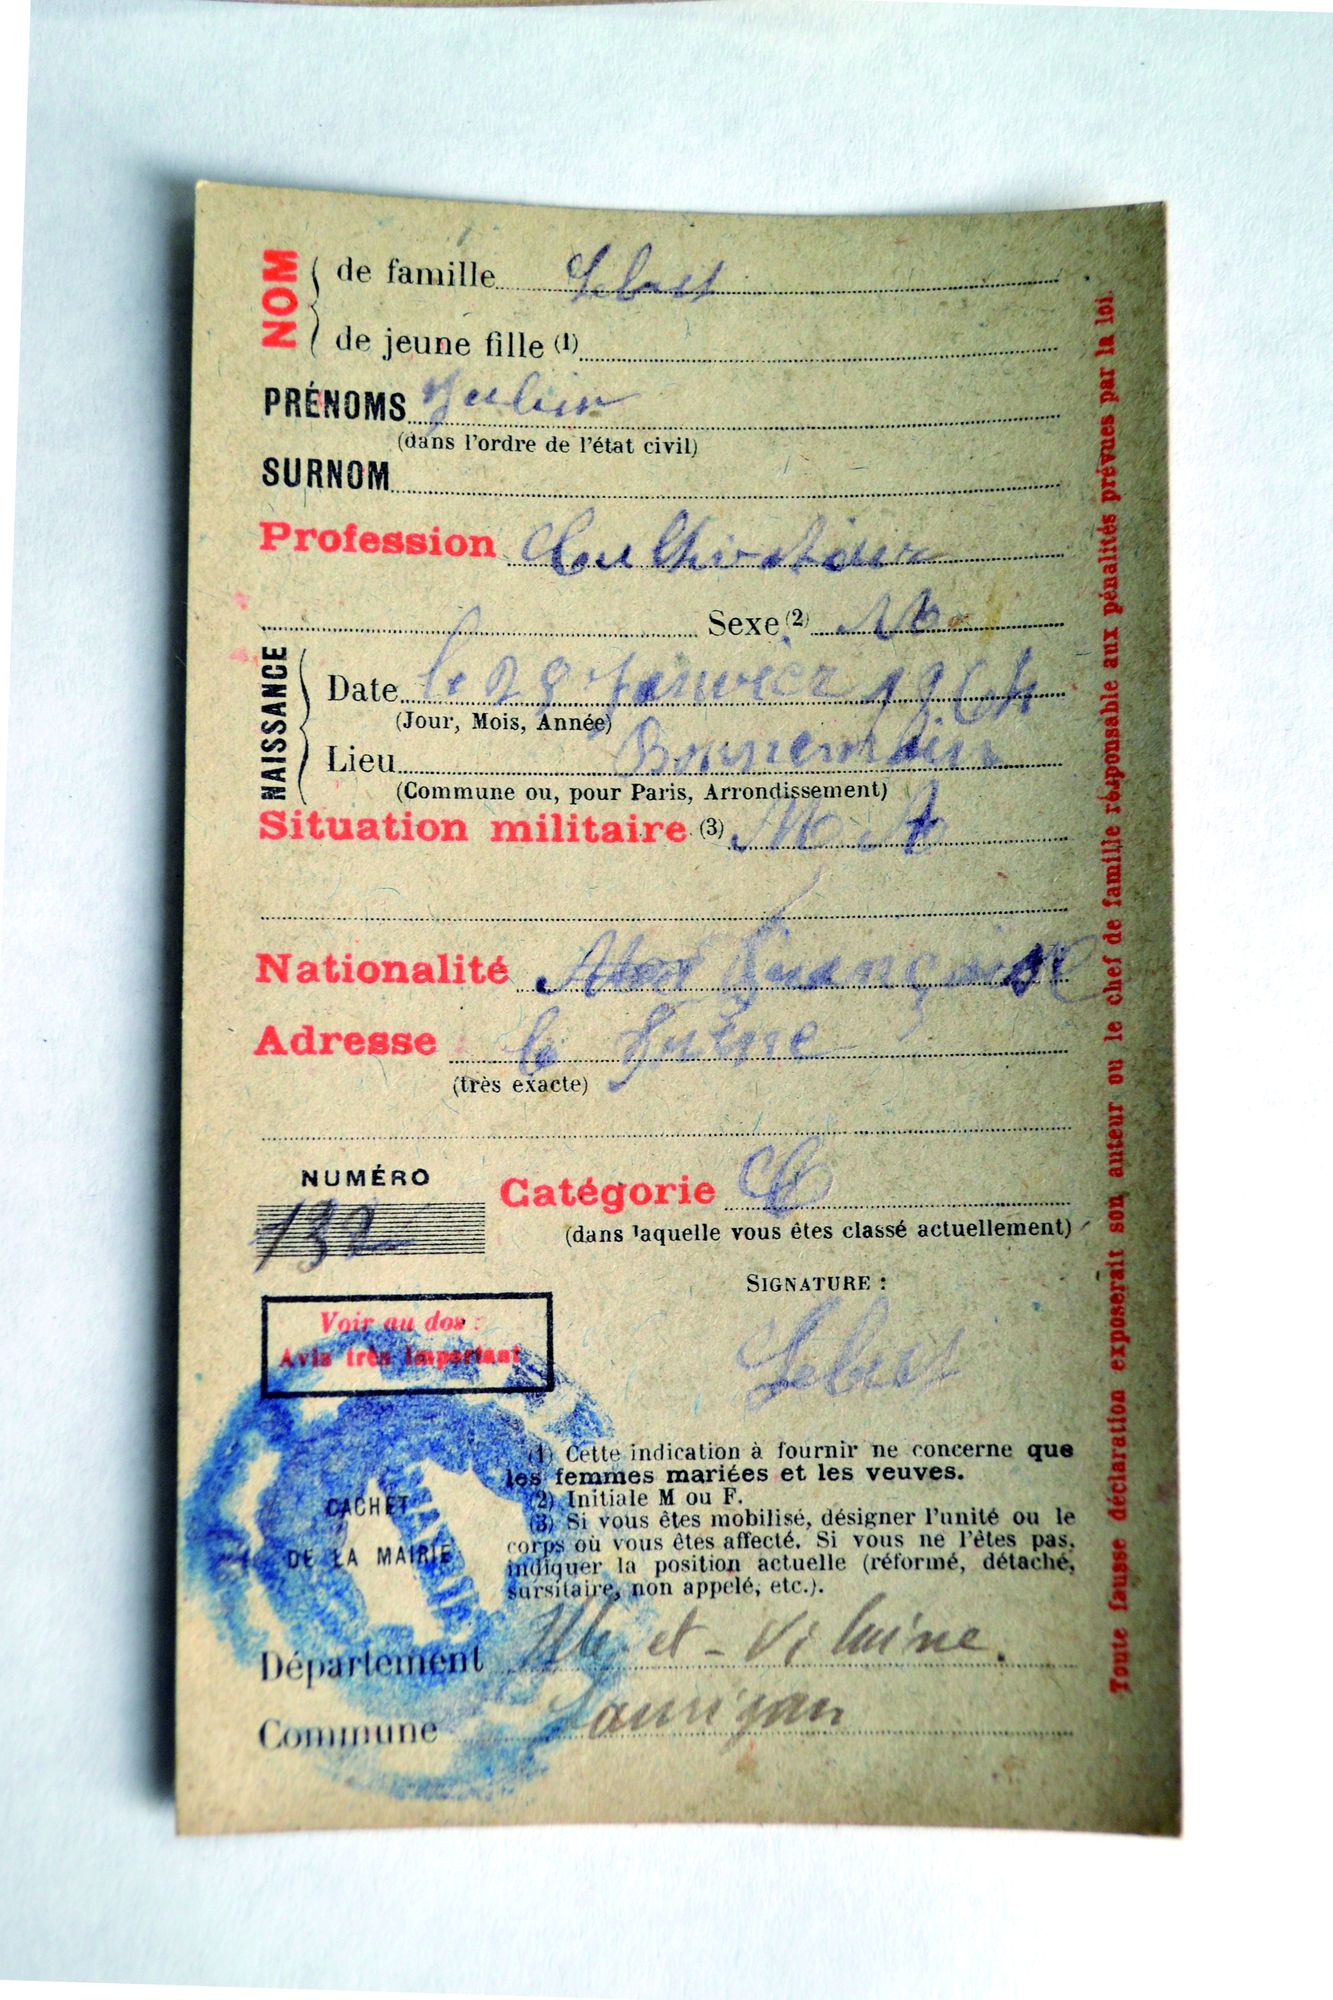 NOM
de famille Lebret
de jeune fille (1)
PRÉNOMS Julien
(dans l'ordre de l'état civil)
SURNOM
Profession Cultivateur
Sexe (2) M
NAISSANCE
Date le 28 Janvier
(Jour, Mois, Année)
Lieu Bonnemain
(Commune ou, pour Paris, Arrondissement)
Situation militaire (3)
Nationalité Française
Adresse le
(très exacte)
NUMÉRO
132
Catégorie C
(dans laquelle vous êtes classé actuellement)
SIGNATURE :
Lebret
Voir au dos :
Avis très important
(1) Cette indication à fournir ne concerne que
les femmes mariées et les veuves.
(2) Initiale M ou F.
(3) Si vous êtes mobilisé, désigner l'unité ou le
corps où vous êtes affecté. Si vous ne l'êtes pas,
indiquer la position actuelle (réformé, détaché,
sursitaire, non appelé, etc.).
CACHET
DE LA MAIRIE
Département Ille-et-Vilaine.
Commune Lanrigan
Toute fausse déclaration exposerait son auteur ou le chef de famille responsable aux pénalités prévues par la loi.